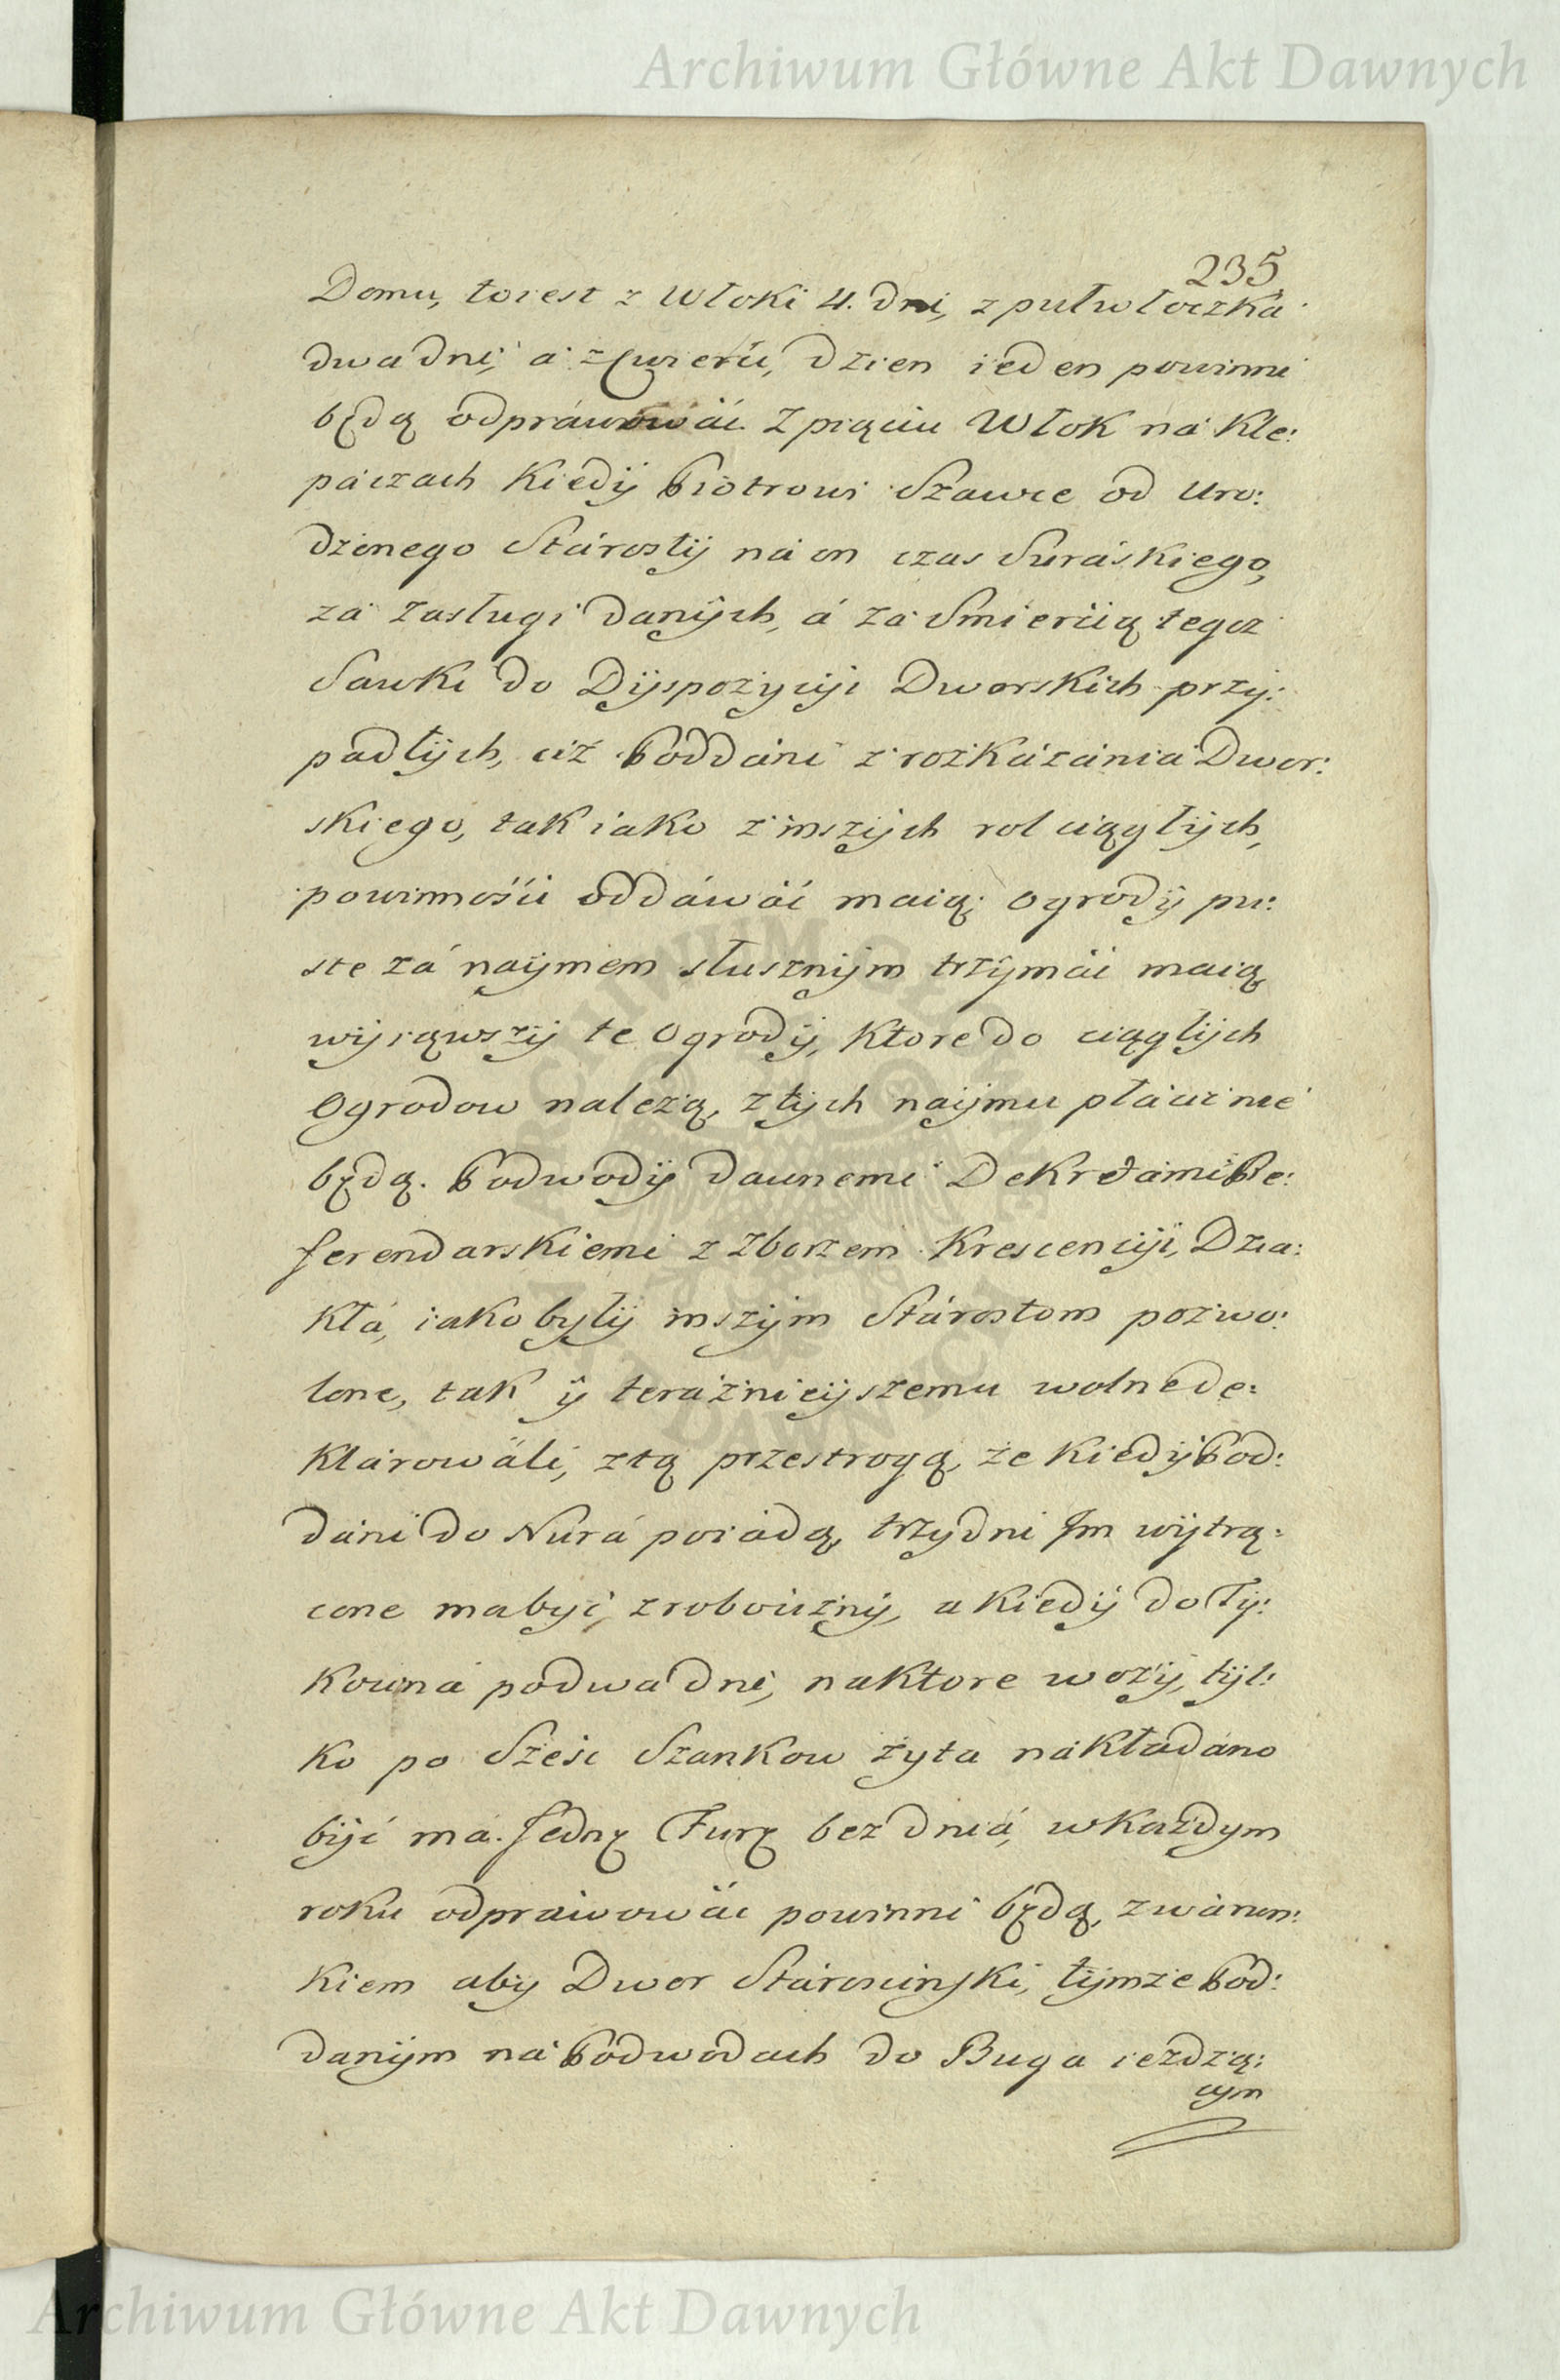 Archiwum Główne Akt Dawnych
235
Domu, toiest z Włoki 4. dni, z pułwłoczká
dwa dni, a z Cwierći, dzien ieden powinni
będą odpráwowáć. Z pięciu Włok ná Kle:
páczach Kiedÿ Piotrowi Szawce od Uro:
dzonego Stárostÿ ná on czas Suráskiego,
zá zasługi danÿch, á zá Smiercią tegoz
Sawki do Dÿspozycÿi Dworskich przÿ:
padłÿch, ciż Poddáni z rozkázánia Dwor:
skiego, tak iako z inszÿch rol ciągłÿch,
powinnośći oddáwáć maią; Ogrodÿ pu:
ste zá naÿmem słusznÿm trzÿmáć maią
wÿiąwszÿ te Ogrodÿ, Ktore do ciągłÿch
Ogrodow należą, z tÿch naÿmu płácić nie
będą. Podwodÿ dawnemi Dekretámi Re:
ferendarskiemi z Zborzem Krescencÿi, Dzia:
kłá, iako byłÿ inszÿm Stárostom pozwo:
lone, tak ÿ teráznieÿszemu wolne de:
klárowáli, z tą przestrogą, że kiedÿ Pod:
dáni do Nurá poiádą, trzy dni Im wÿtrą:
cone ma być, z roboćiznÿ, a kiedÿ do Tÿ:
kocina po dwa dni, na ktore wozÿ, tÿl:
ko po Sześć Szankow żyta nákładáno
bÿć má. Jednę Furę bez dniá, w każdym
roku odpráwowáć powinni będą, z wárun:
kiem aby Dwor Stárosciński, tÿmże Pod:
danÿm ná Podwodach do Buga ieżdzą:
cym
Archiwum Główne Akt Dawnych